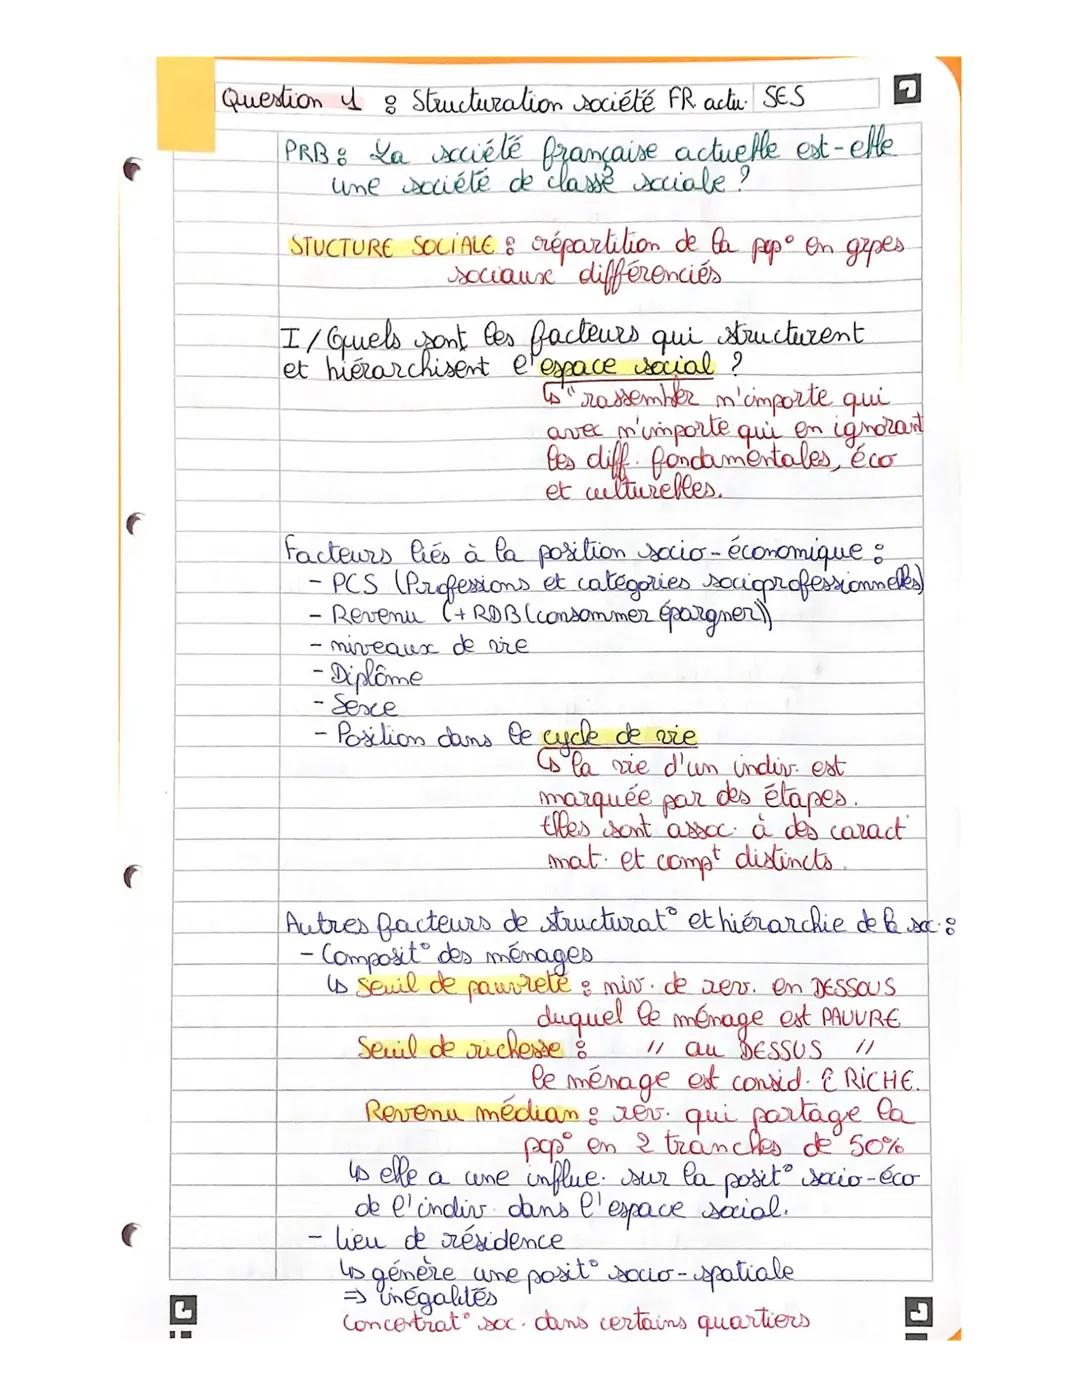 Question 1 : Structuration société FR actu. SES
PRB : La société française actuelle est-elle
une société de classe sociale ?
STUCTURE SOCIALE : répartition de la pop° en grpes
sociaux différenciés
I/ Quels sont les facteurs qui structurent
et hiérarchisent l'espace social ?
↳ "rassembler n'importe qui
avec n'importe qui en ignorant
les diff. fondamentales, éco
et culturelles.
Facteurs liés à la position socio-économique :
- PCS (Professions et catégories socioprofessionnelles)
- Revenu (+ RDB (consommer épargner))
- niveaux de vie
- Diplôme
- Sexe
- Position dans le cycle de vie
↳ la vie d'un indiv. est
marquée par des étapes.
Elles sont assoc. à des caract
mat. et compt distincts.
Autres facteurs de structurat° et hiérarchie de la soc. :
- Composit° des ménages
↳ Seuil de pauvreté : niv. de rev. en DESSOUS
duquel le ménage est PAUVRE
Seuil de richesse : // au DESSUS //
le ménage est consid. RICHE.
Revenu médian : rev. qui partage la
pop° en 2 tranches de 50%
↳ elle a une influe. sur la posit° socio-éco
de l'indiv. dans l'espace social.
- lieu de résidence
↳ génère une posit° socio-spatiale
⇒ inégalités
Concentrat° soc. dans certains quartiers